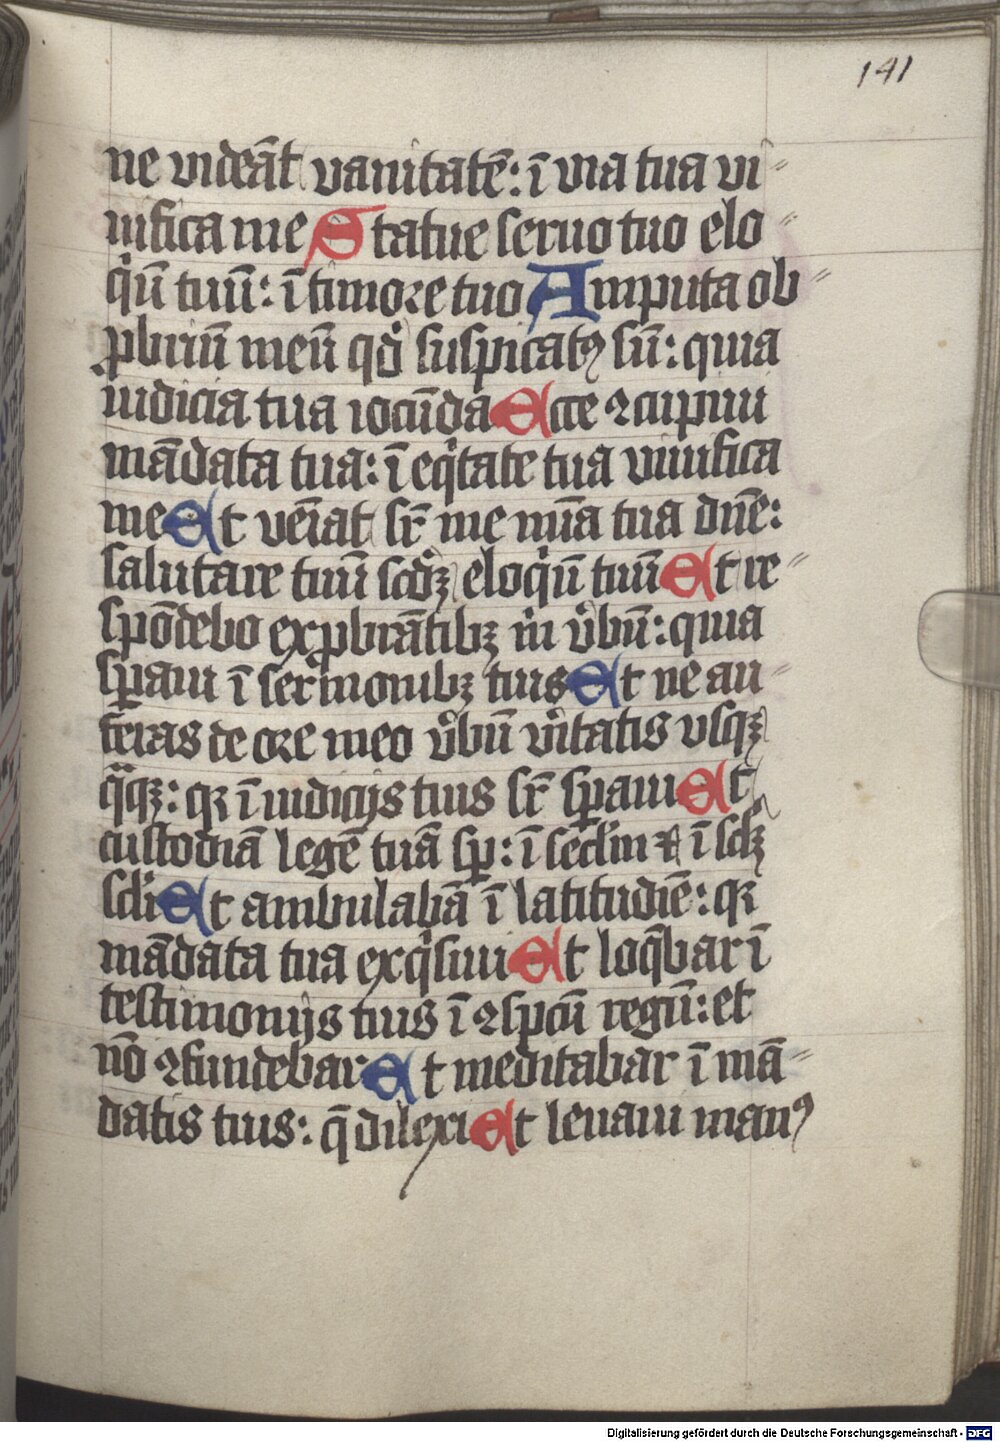 141
ne videāt vanitatē: ī via tua vi
uifica me Statue seruo tuo elo
qͥū tuū: ī timore tuo Amputa ob
ꝓbriū meū qd̛ suspicatꝰ sū: quia
iudicia tua iocūda Ecce ꝯcupiui
mādata tua: ī eqͥtate tua viuifica
me Et vēiat sr̄ me mīa tua dn̄e:
salutare tuū scd̛ꝫ eloqͥū tuū Et re
spōdebo exꝓbrātibꝫ m̛ v̛bū: quia
sꝑaui ī sermonibꝫ tuis Et ne au
feras de ore meo v̛bū v̛itatis vsqꝫ
qͣqꝫ: qꝛ ī iudicijs tuis sr̄ sꝑaui Et
custodiā legē tuā sꝑ: ī secl̛m ⁊ ī sclꝫ
scl̛i Et ambulabā ī latitudīe: qꝛ
mādata tua exqͥsiui Et loq̄bar ī
testimonijs tuis ī ꝯspcū regū: et
nō ꝯfundebar Et meditabar ī mā
datis tuis: q̄ dilexi Et leuaui manꝰ
Digitalisierung gefördert durch die Deutsche Forschungsgemeinschaft - DFG